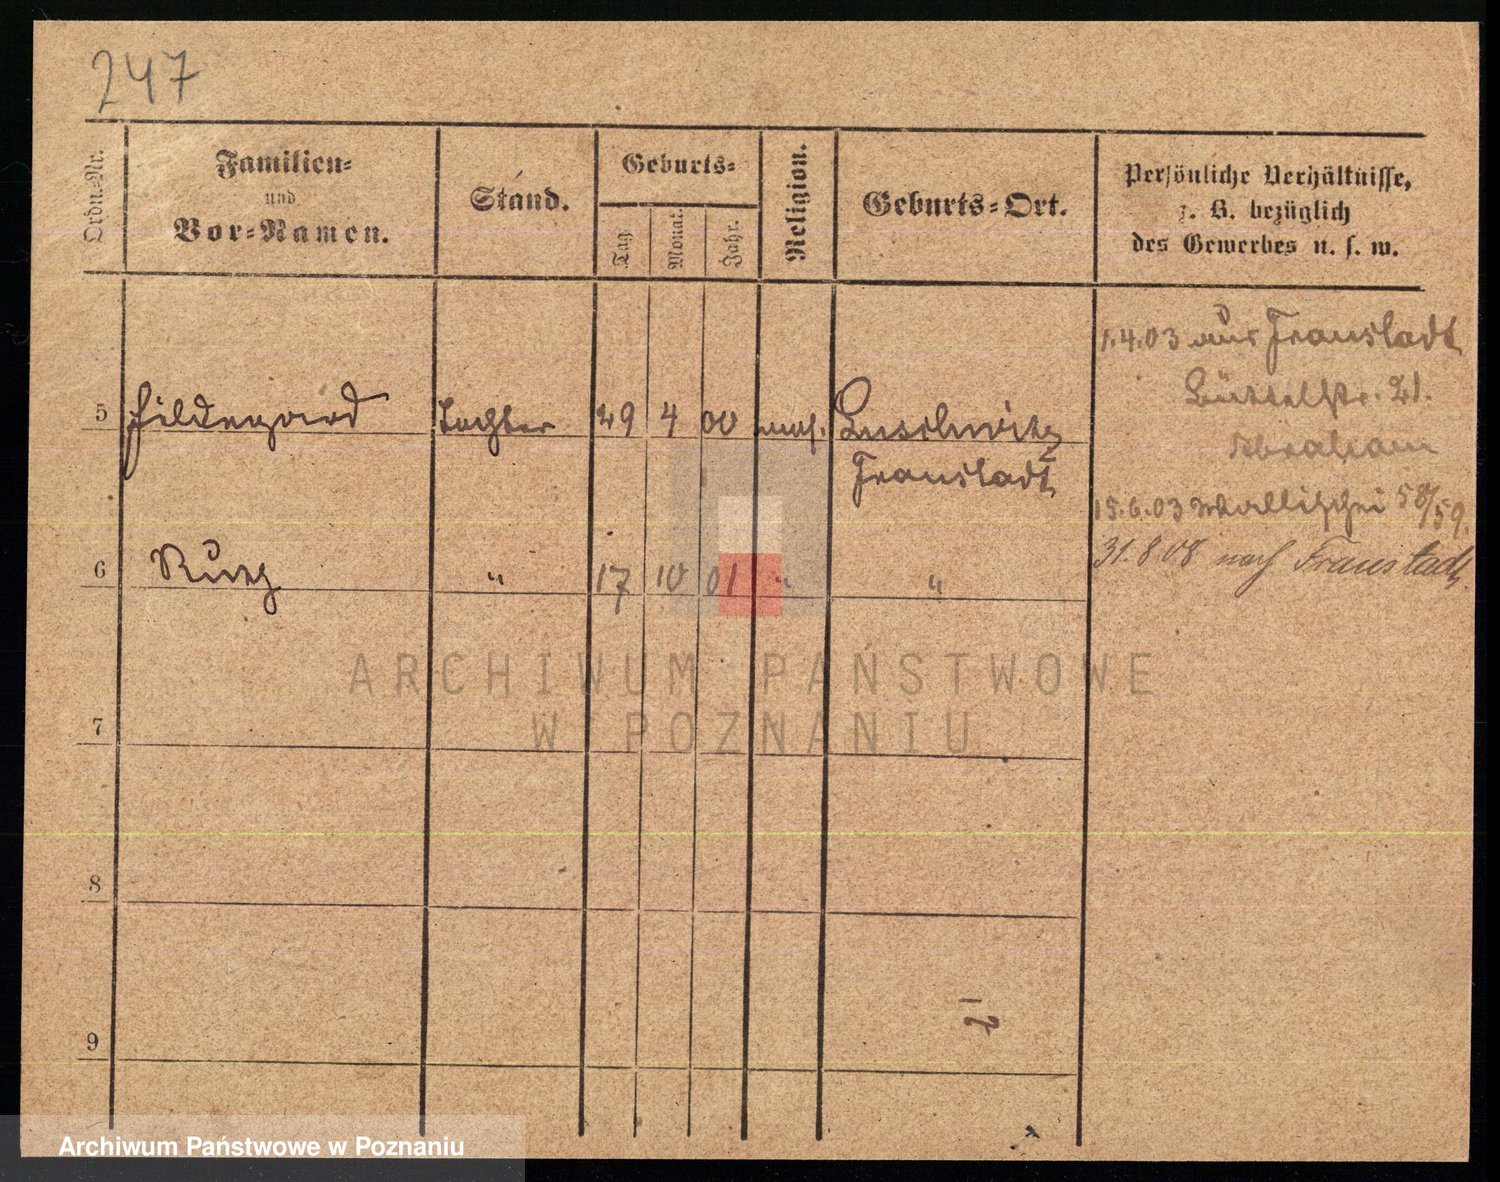 247
Ordn.=Nr.
Familien=
und
Vor=Namen.
Stand.
Geburts=
Tag
Monat.
Jahr.
Religion.
Geburts=Ort.
Persönliche Verhältnisse,
z. B. bezüglich
des Gewerbes u. s. w.
1.4.03 aus Fraustadt
21.
Abraham
15.6.03 Wallischei 58/59.
31.8.08 nach Fraustadt
5 Hildegard Tochter 29 4 00 Luschwitz
Fraustadt
6 " 17 10 01 " "
7
8
9
ARCHIWUM PAŃSTWOWE
W POZNANIU
Archiwum Państwowe w Poznaniu